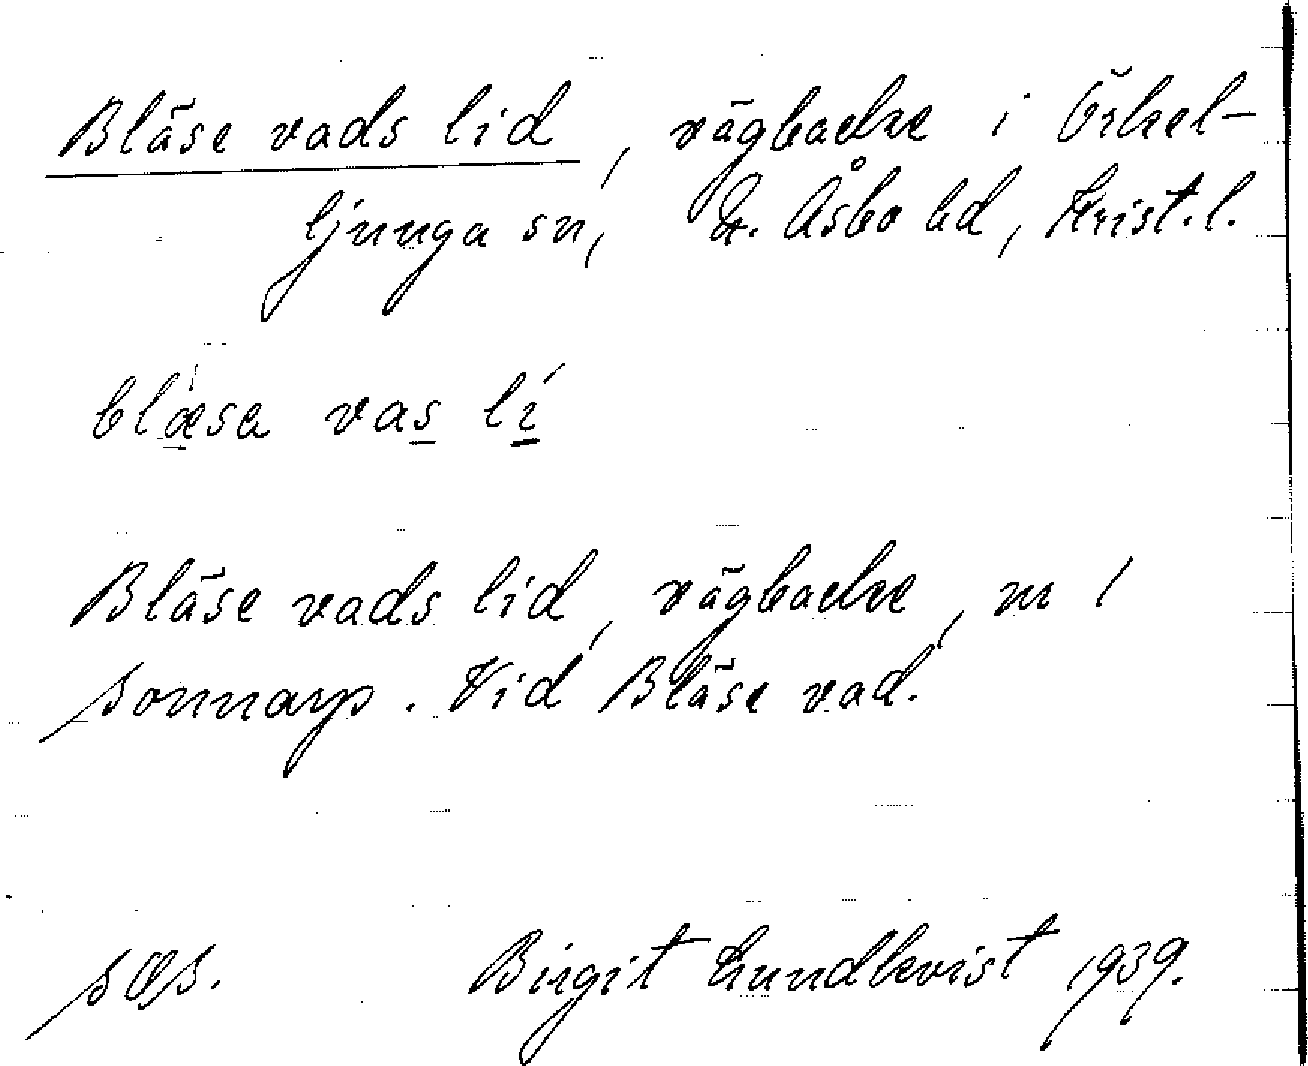 Bläse vads lid, vägbacke i Örkel-
ljunga sn, N. Åsbo hd, Krist. l.
blæsa vas lí
Bläse vads lid, vägbacke, m i
Sonnarp. Vid Bläse vad.
Birgit Lundkvist 1939.